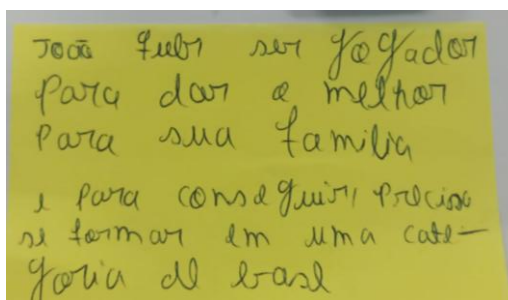 João quer ser jogador
para dar o melhor
para sua familia
e para conseguir, precisa
se formar em uma cate-
goria de base